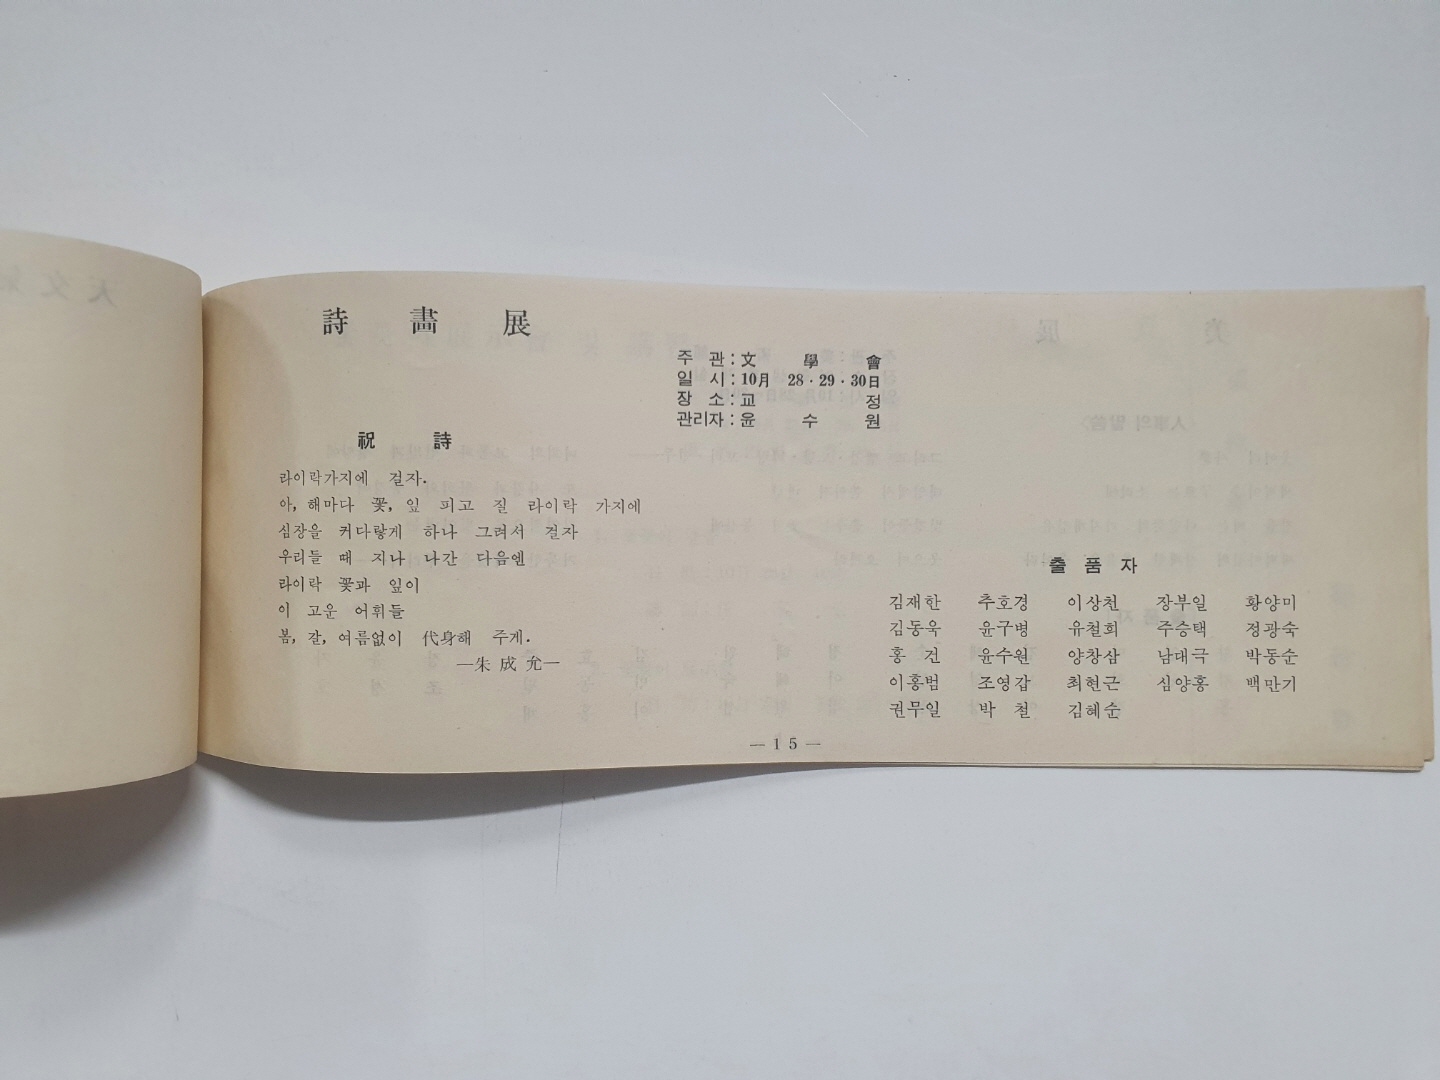 詩 畵 展
주 관 : 文 學 會
일 시 : 10月 28 · 29 · 30日
장 소 : 교 정
관리자 : 윤 수 원
祝 詩
라이락가지에 걸자.
아, 해마다 꽃, 잎 피고 질 라이락 가지에
심장을 커다랗게 하나 그려서 걸자
우리들 때 지나 나간 다음엔
라이락 꽃과 잎이
이 고운 어휘들
봄, 갈, 여름없이 代身해 주게.
—朱 成 允—
출 품 자
김재한 추호경 이상천 장부일 황양미
김동욱 윤구병 유철희 주승택 정광숙
홍 건 윤수원 양창삼 남대극 박동순
이홍범 조영갑 최현근 심양홍 백만기
권무일 박 철 김혜순
— 1 5 —